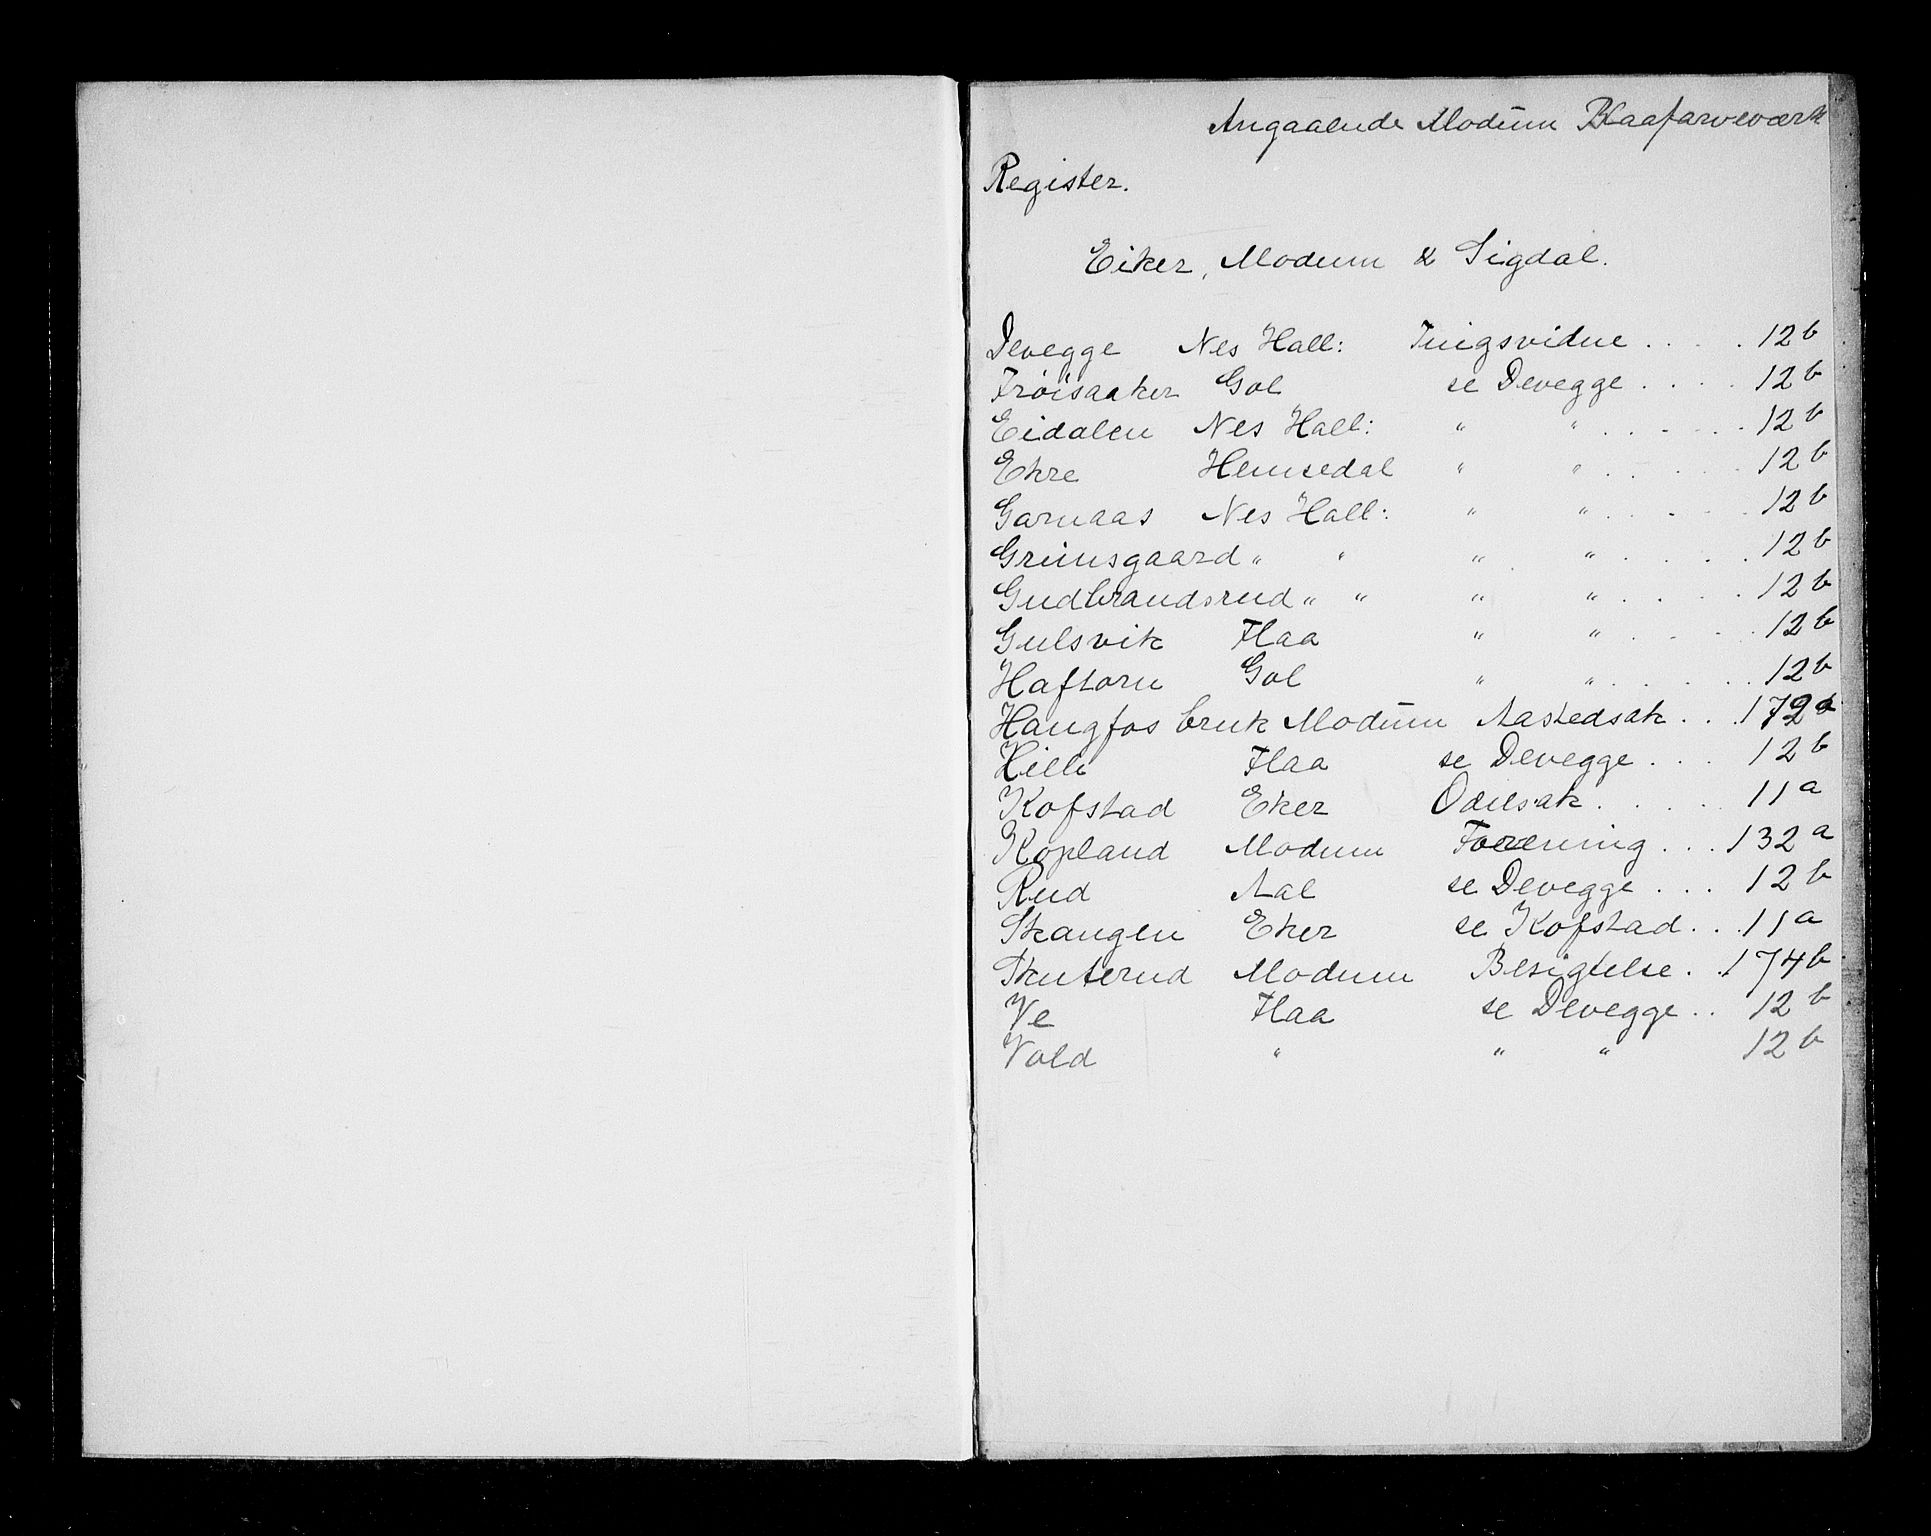 Angaaende Modum Blaafarveværk
Register.
Eiker, Modum & Sigdal.
Devegge Nes Hall: Tingsvidne . . . . 12 b
Frøisaaker Gol se Devegge . . . . 12 b
Eidalen Nes Hall: " " . . . . . 12 b
Ekre Hemsedal " " . . . . 12 b
Garnaas Nes Hall: " " . . . . . 12 b
Grimsgaard " " " " . . . . 12 b
Gudbrandsrud " " " " . . . . 12 b
Gulsvik Flaa " " . . . . 12 b
Haftorn Gol " " . . . . . 12 b
Haugfos bruk Modum Aastedsak . . . 172 a
Hilli Flaa se Devegge . . . 12 b
Kofstad Eker Odelsak . . . . 11 a
Kopland Modum Forening . . . 132 a
Rud Aal se Devegge . . . 12 b
Skangen Eker se Kofstad . . . 11 a
Skuterud Modum Besigtelse . . 174 b
Ve Flaa se Devegge . . 12 b
Vold " " " 12 b